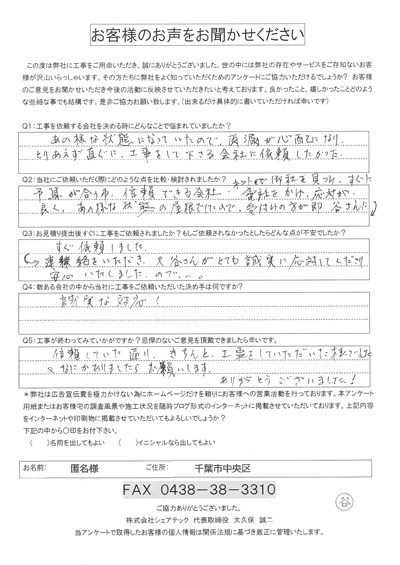 お客様のお声をお聞かせください
この度は弊社に工事をご用命いただき、誠にありがとうございました。世の中には弊社の存在やサービスをご存知ないお客
様が沢山いらっしゃいます。その方たちに弊社をよく知っていただくためのアンケートにご協力いただけるでしょうか？ お客様
のご意見をお聞かせいただき今後の活動に反映させていただきたいと考えております。良かったこと、嬉しかったことどのよう
な些細な事でも結構です。是非ご協力お願い致します。（出来るだけ具体的に書いていただければ幸いです）
Q1：工事を依頼する会社を決める時にどんなことで悩まれていましたか？
あの様な状態になっていたので、雨漏が心配になり、
とりあえず直ぐに、工事をして下さる会社に依頼したかった。
Q2：当社にご依頼いただく際にどのような点を比較・検討されましたか？
ネットで御社を見つけ、すぐに
予算が合うか、信頼できる会社。電話をかけ、応対が
良く、あの様な状態の屋根だけので、受付けの方が即 谷さんに
Q3：お見積り提出後すぐに工事をご依頼されましたか？もしご依頼されなかったとしたらどんな点が不安でしたか？
すぐ依頼しました。
連絡をいただき、又谷さんがとても誠実に応対してくださり
安心いたしました。ので、…。
Q4：数ある会社の中から当社に工事をご依頼いただいた決め手は何ですか？
誠実な対応！
Q5：工事が終わってみていかがですか？忌憚のないご意見を頂戴できましたら幸いです。
信頼していた通り、きちんと、工事をしていただいた様です
又なにかありましたらお願いします。
ありがとうございました！
＊弊社は広告宣伝費を極力かけない為にホームページだけを頼りにお客様への営業活動を行っております。本アンケート
用紙またはお客様宅の調査風景や施工状況を随時ブログ形式のインターネットに掲載させていただいております。上記内容
をインターネットや印刷物に掲載させていただいてもよろしいでしょうか？
下記の中から〇印をお付下さい。
（　）名前を出してもよい　（　）イニシャルなら出してもよい
お名前： 匿名様 ご住所： 千葉市中央区
FAX 0438-38-3310
ご協力ありがとうございました。
株式会社シェアテック 代表取締役 大久保 誠二
当アンケートで取得したお客様の個人情報は関係法規に基づき厳正に管理いたします。
谷